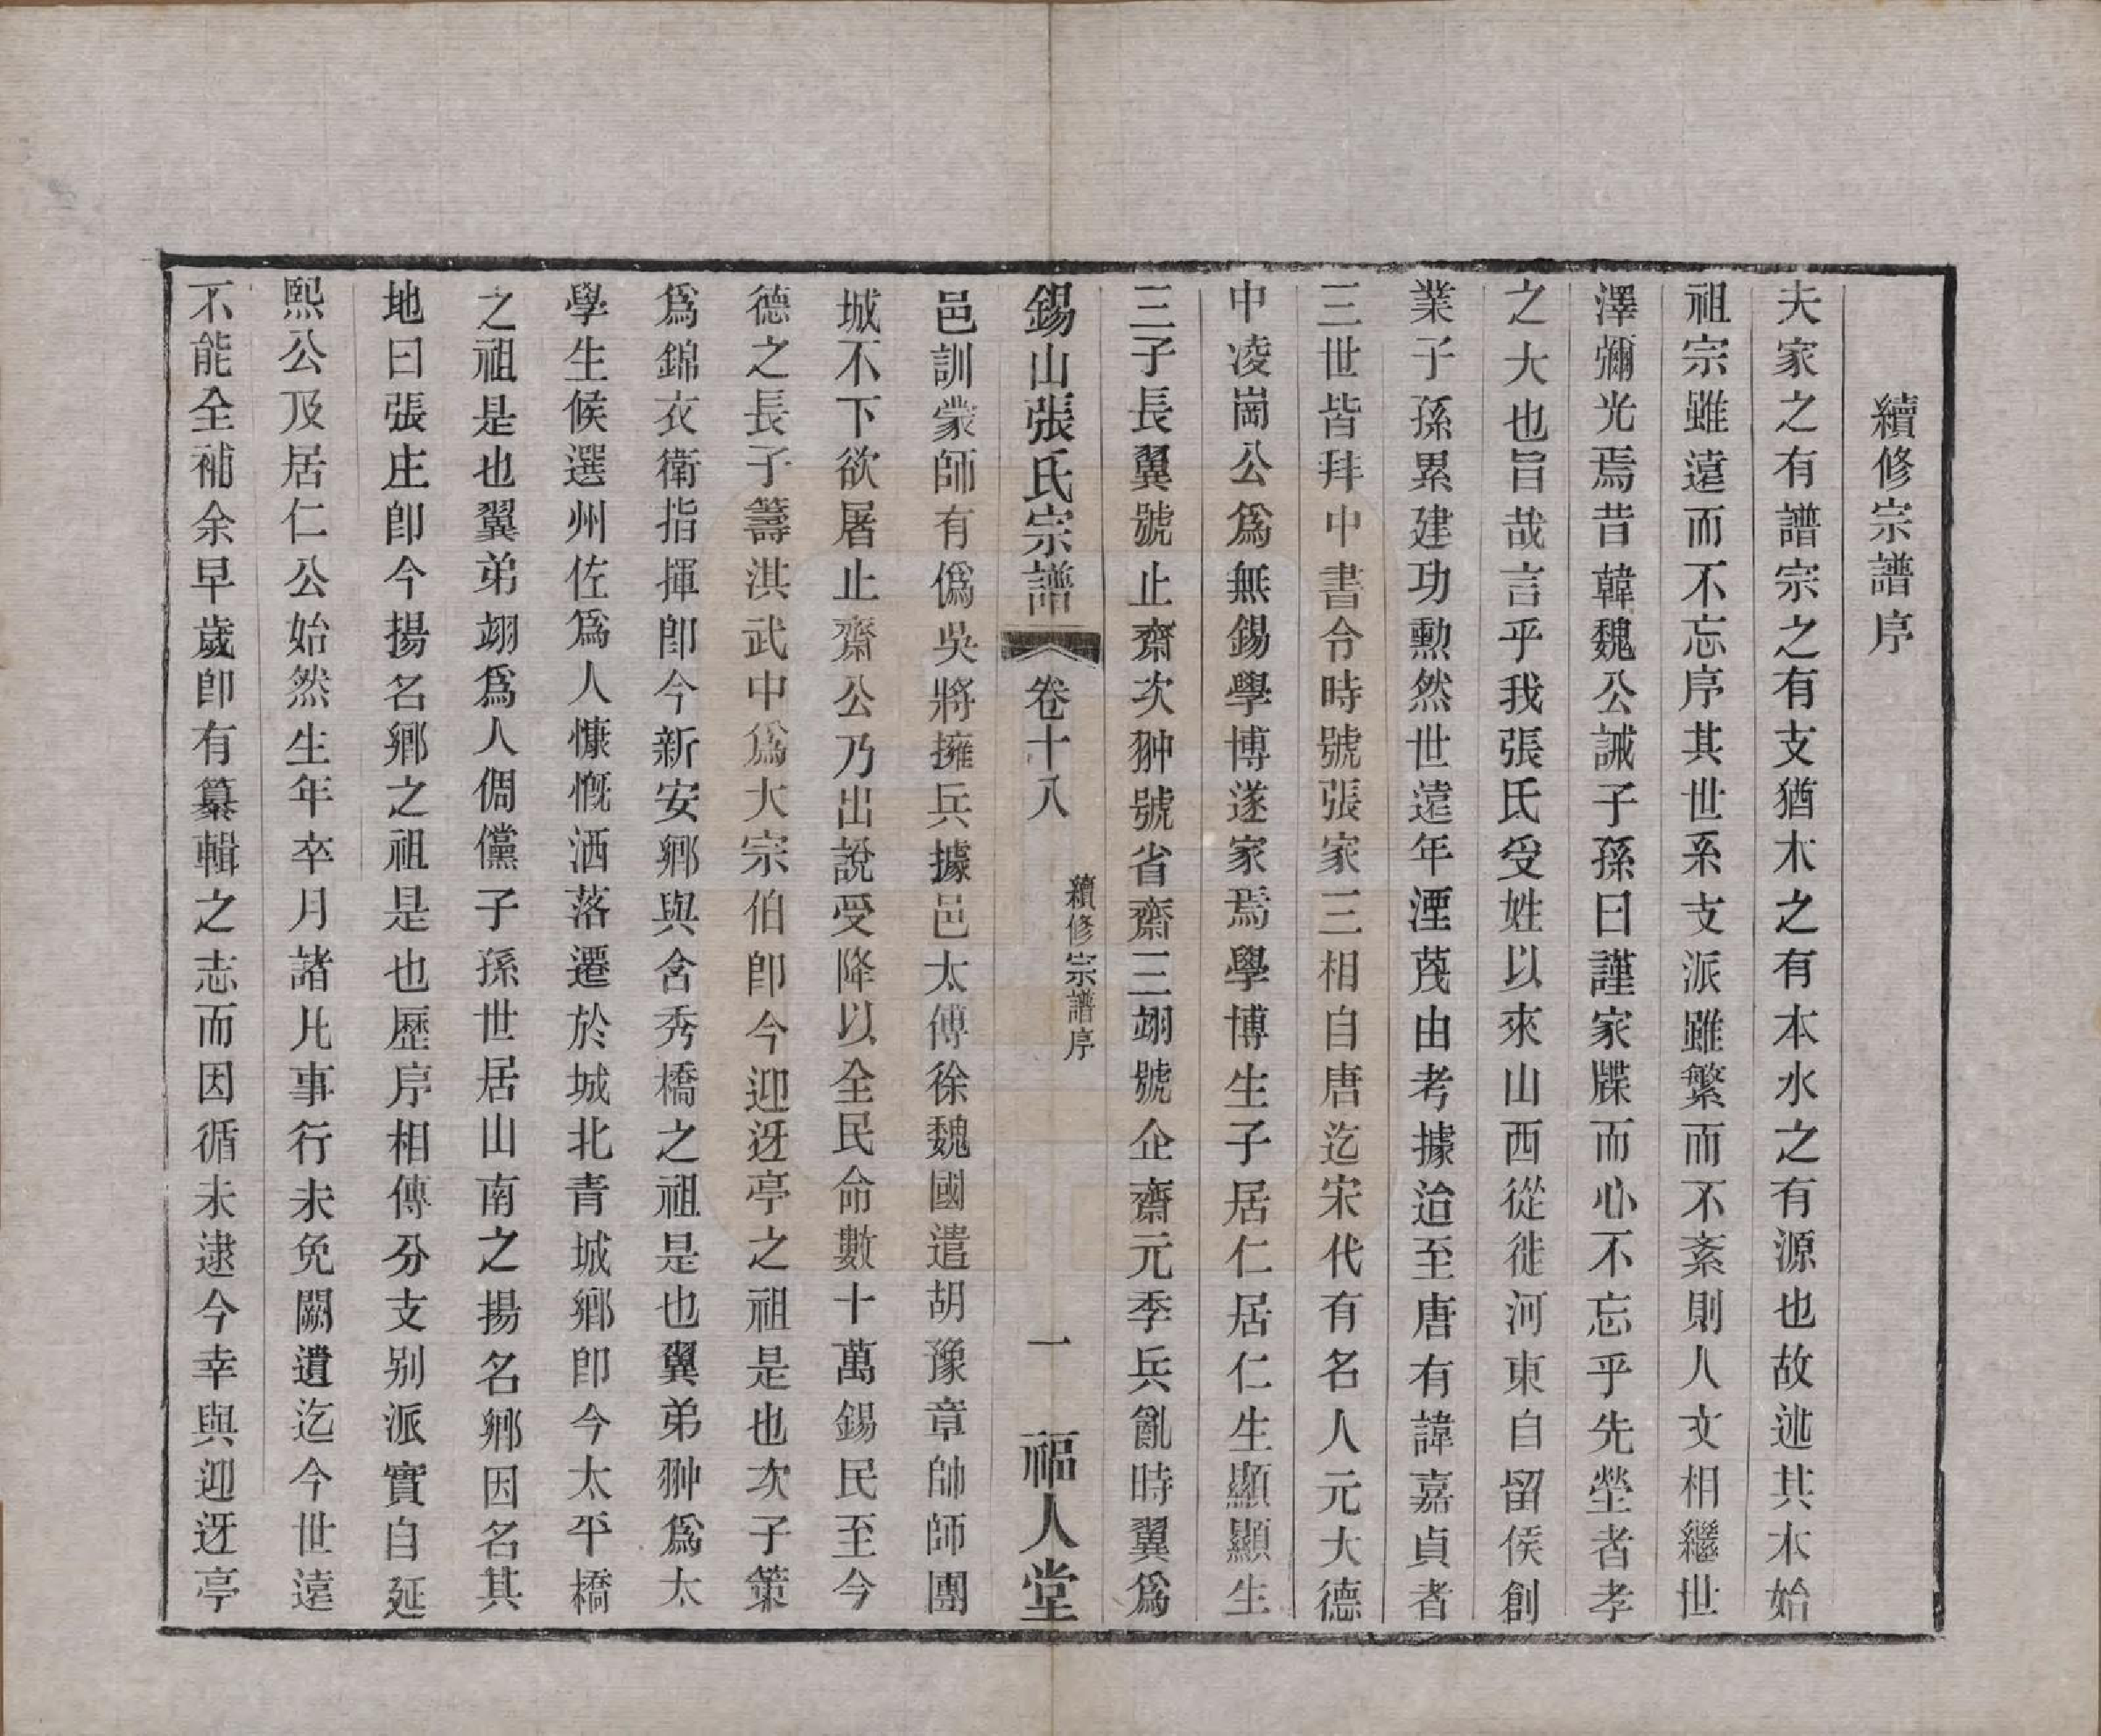 續修宗譜序
夫家之有譜宗之有支猶木之有本水之有源也故述其木始
祖宗雖遠而不忘序其世系支派雖繁而不紊則人文相繼世
澤彌光焉昔韓魏公誡子孫曰謹家牒而心不忘乎先塋者孝
之大也旨哉言乎我張氏受姓以來山西從徙河東自留侯創
業子孫累建功勲然世遠年湮茂由考據迨至唐有諱嘉貞者
三世皆拜中書令時號張家三相自唐迄宋代有名人元大德
中凌崗公爲無錫學博遂家焉學博生子居仁居仁生顯顯生
三子長翼號止齋次翀號省齋三翊號企齋元季兵亂時翼爲
錫山張氏宗譜 卷十八 續修宗譜序 一 福人堂
邑訓蒙師有僞吳將擁兵據邑太傅徐魏國遣胡豫章帥師團
城不下欲屠止齋公乃出說受降以全民命數十萬錫民至今
德之長子籌淇武中爲大宗伯卽今迎迓亭之祖是也次子策
爲錦衣衛指揮卽今新安鄉與含秀橋之祖是也翼弟翀爲太
學生候選州佐爲人慷慨洒落遷於城北青城鄉卽今太平橋
之祖是也翼弟翊爲人倜儻子孫世居山南之揚名鄉因名其
地曰張庄卽今揚名鄉之祖是也歷序相傳分支别派實自延
熙公及居仁公始然生年卒月諸凡事行未免闕遺迄今世遠
不能全補余早歲卽有纂輯之志而因循未逮今幸與迎迓亭